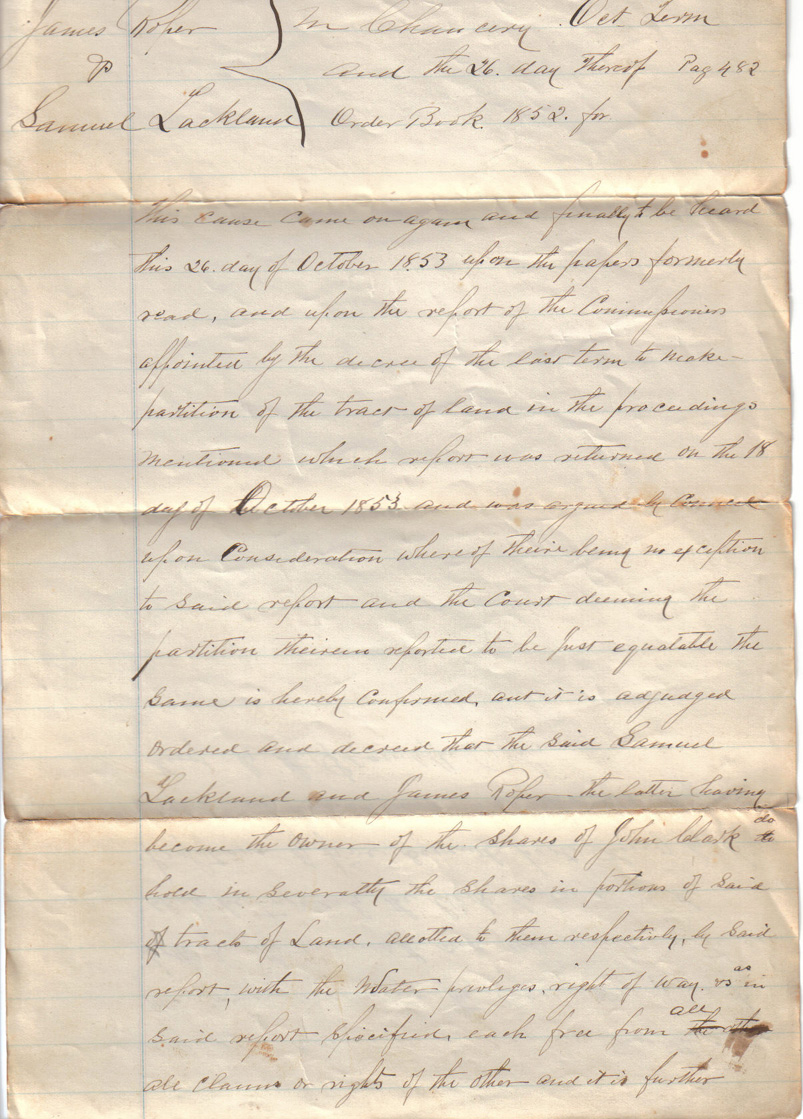 James Roper } In Chancery. Oct Term
and the 26. day thereof Pag 482
Samuel Lackland Order Book. 1852. for
This cause came on again and finally to be heard
this 26. day of October 1853 upon the papers formerly
read, and upon the report of the Commissioners
appointed by the decree of the last term to make
partition of the tract of land in the proceedings
mentioned which report was returned on the 18
day of October 1853 and was argued by Councel
upon Consideration whereof theire being no exception
to said report and the Court deeming the
partition theirein reported to be just equatable the
same is hereby Confirmed, and it is adjudged
ordered and decreed that the said Samuel
Lackland and James Roper the latter having
become the owner of the shares of John Clark to do
hold in severatty the shares in portions of said
of tracts of Land, allotted to them respectivly, by said
report, with the Water privleges, right of way. as in
said report specified, each free from the other all
all claims or rights of the other and it is further